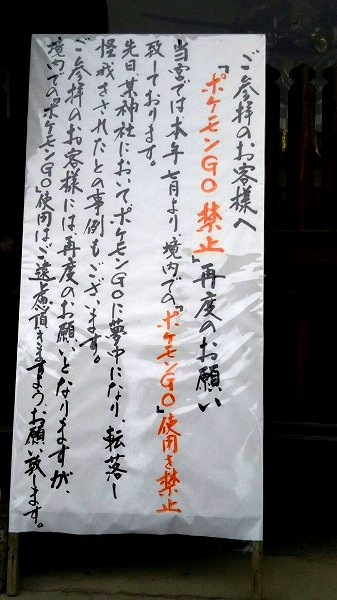 ご参拝のお客様へ
「ポケモンGO禁止」再度のお願い
当宮では本年七月より、境内での『ポケモンGO』使用を禁止
致しております。
先日某神社において、ポケモンGOに夢中になり、転落し
怪我をされたとの事例もございます。
ご参拝のお客様には再度のお願いとなりますが、
境内での『ポケモンGO』使用はご遠慮頂きますようお願い致します。